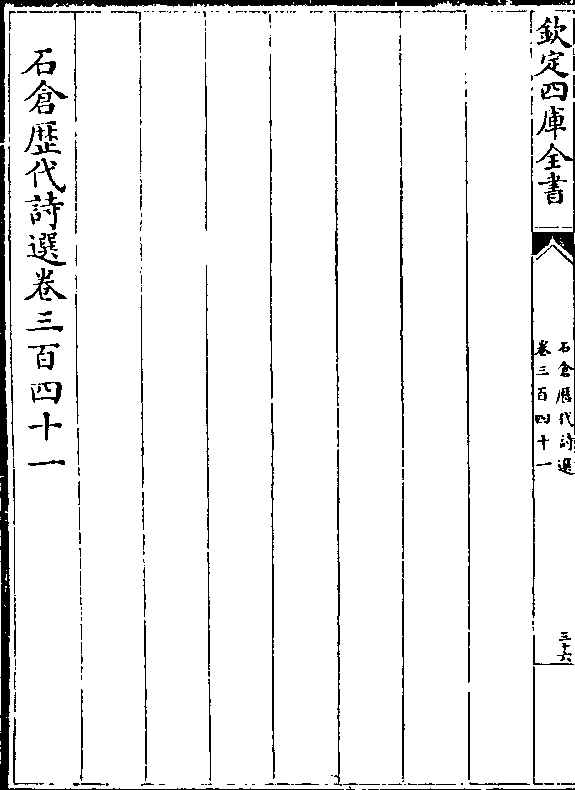 欽定四庫全書
石倉歷代詩選
卷三百四十一
三十六
石倉歷代詩選卷三百四十一